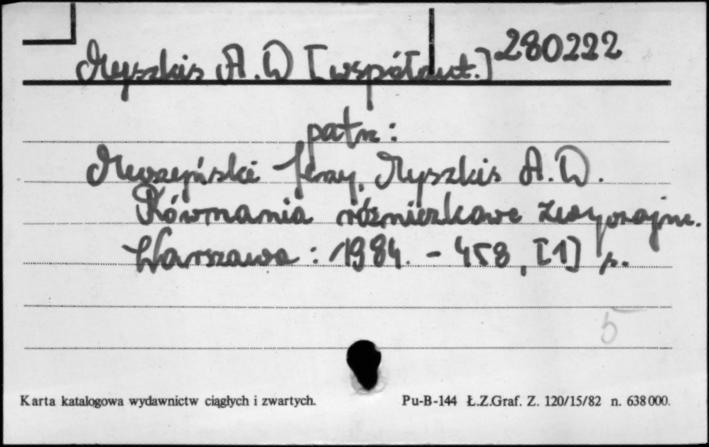 Myszkis A.D [współaut.] 280222
patrz:
Muszyński Jerzy, Myszkis A.D.
Równania różniczkowe zwyczajne.
Warszawa: 1984. - 458, [1] s.
5
Karta katalogowa wydawnictw ciągłych i zwartych. Pu-B-144 Ł.Z.Graf. Z. 120/15/82 n. 638000.